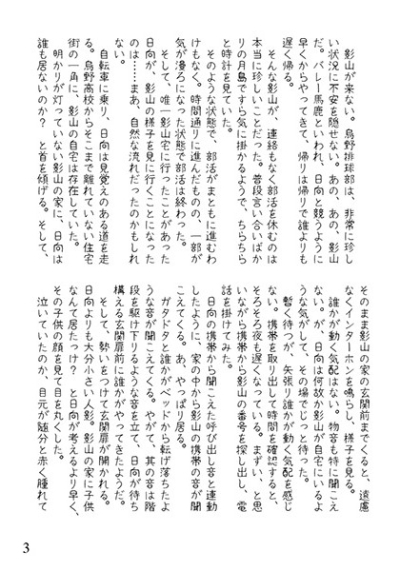 影山が来ない。烏野排球部は、非常に珍し
い状況に不安を隠せない。あの、あの、影山
だ。バレー馬鹿といわれ、日向と競うように
早くからやってきて、帰りは帰りで誰よりも
遅く帰る。
そんな影山が、連絡もなく部活を休むのは
本当に珍しいことだった。普段言い合いばか
りの月島ですら気に掛かるようで、ちらちら
と時計を見ていた。
そのような状態で、部活がまともに進むわ
けもなく。時間通りに進んだものの、一部が
気が漫ろになった状態で部活は終わった。
そして、唯一影山宅に行ったことがあった
日向が、影山の様子を見に行くことになった
のは……まあ、自然な流れだったのかもしれ
ない。
自転車に乗り、日向は見覚えのある道を走
る。烏野高校からそこまで離れていない住宅
街の一角に、影山の自宅は存在していた。
明かりが灯っていない影山の家に、日向は
誰も居ないのか？　と首を傾げる。そして、
そのまま影山の家の玄関前までくると、遠慮
なくインターホンを鳴らし、様子を見る。
誰かが動く気配はない。物音も特に聞こえ
ない。が、日向は何故か影山が自宅にいるよ
うな気がして、その場でじっと待った。
暫く待つが、矢張り誰かが動く気配を感じ
ない。携帯を取り出して時間を確認すると、
そろそろ夜も遅くなっている。まずい、と思
いながら携帯から影山の番号を探し出し、電
話を掛けてみた。
日向の携帯から聞こえた呼び出し音と連動
したように、家の中から影山の携帯の音が聞
こえてくる。あ、やっぱり居る。
ガタドタと誰かがベッドから転げ落ちたよ
うな音が聞こえてくる。やがて、其の音は階
段を駆け下りるような音を立て、日向が待ち
構える玄関扉前に誰かがやってきたようだ。
そして、勢いをつけて玄関扉が開かれる。
日向よりも大分小さい人影。影山の家に子供
なんて居たっけ？　と日向が考えるより早く、
その子供の顔を見て目を丸くした。
泣いていたのか、目元が随分と赤く腫れて
3